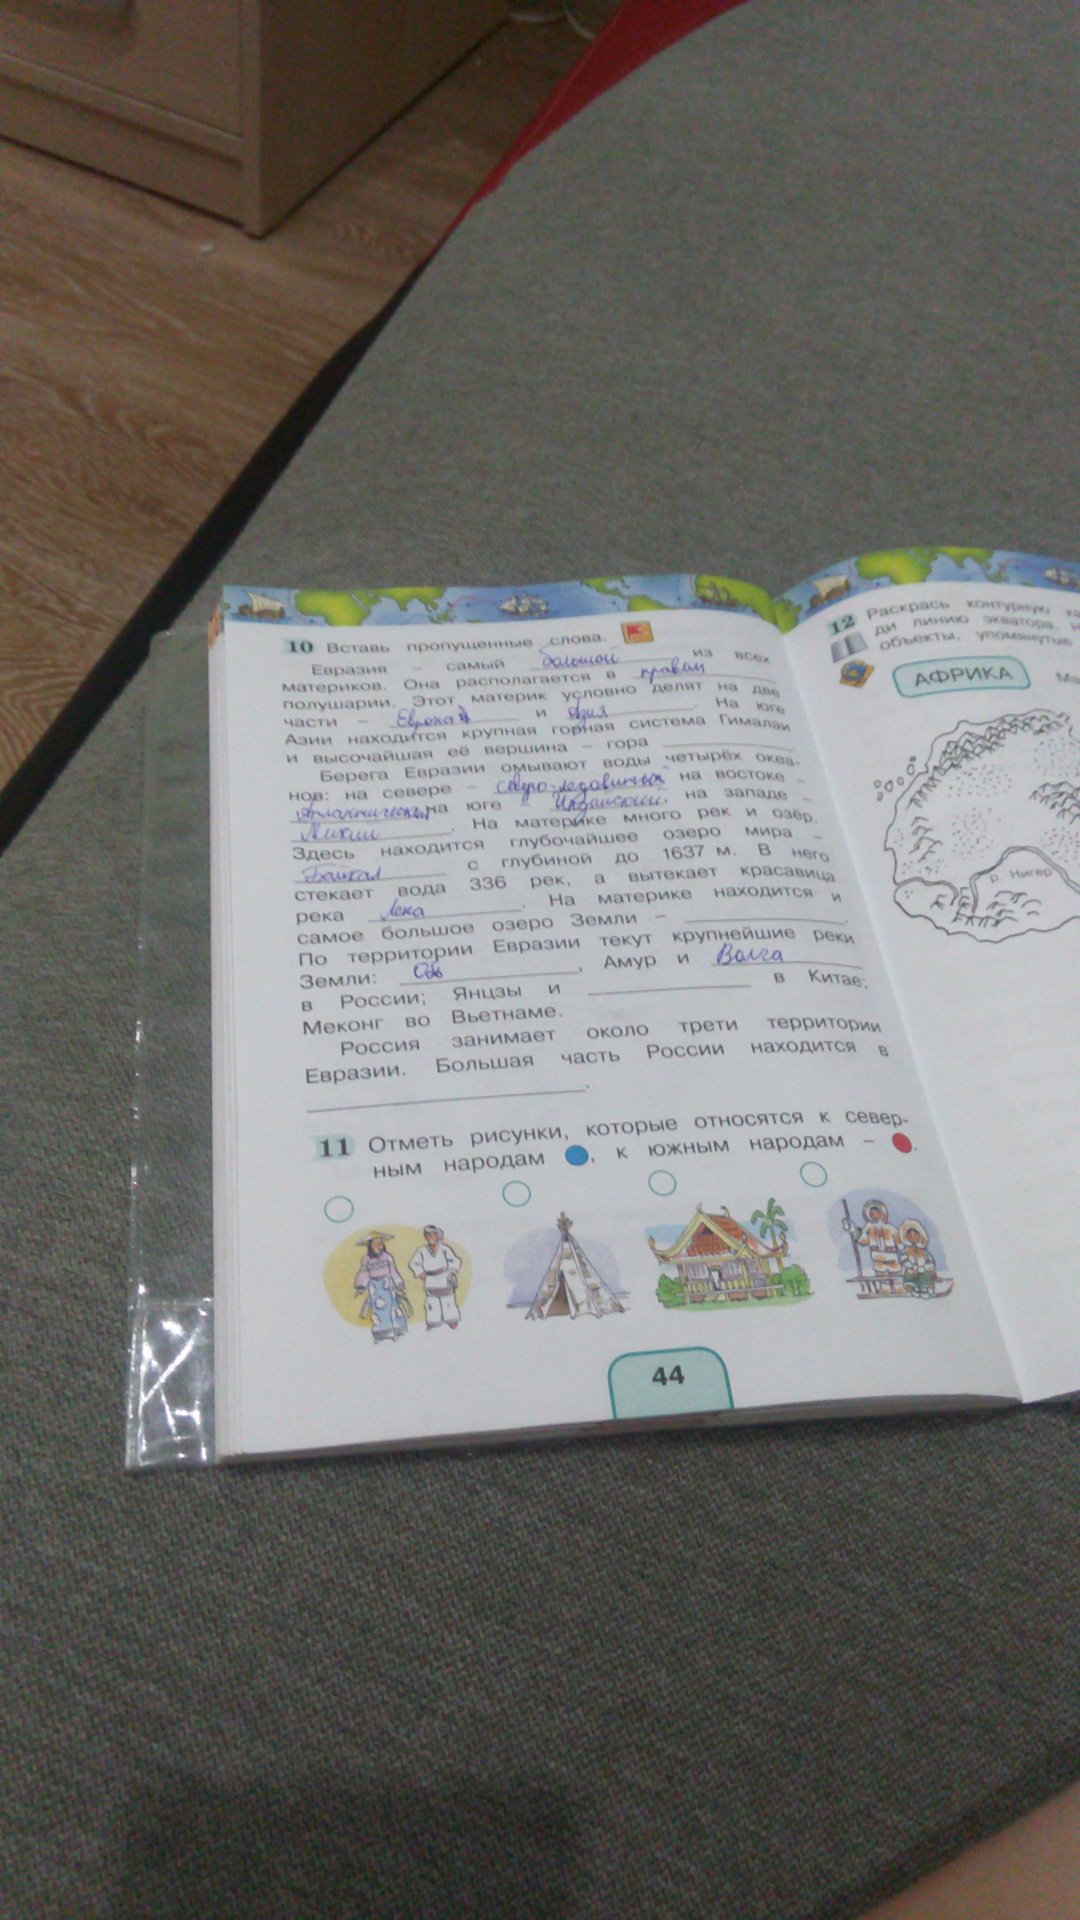 10 Вставь пропущенные слова.
Евразия – самый большой из всех
материков. Она располагается в правом
полушарии. Этот материк условно делят на две
части – Европа и Азия. На юге
Азии находится крупная горная система Гималаи
и высочайшая её вершина – гора
Берега Евразии омывают воды четырёх океа-
нов: на севере – северо-ледовитый на востоке –
Атлантический на юге – Индийский, на западе –
Тихий. На материке много рек и озёр.
Здесь находится глубочайшее озеро мира –
Байкал с глубиной до 1637 м. В него
стекает вода 336 рек, а вытекает красавица
река Лена. На материке находится и
самое большое озеро Земли – .
По территории Евразии текут крупнейшие реки
Земли: Обь, Амур и Волга
в России; Янцзы и в Китае;
Меконг во Вьетнаме.
Россия занимает около трети территории
Евразии. Большая часть России находится в
.
11 Отметь рисунки, которые относятся к север-
ным народам , к южным народам – .
44
12 Раскрась контурную
ди линию экватора.
объекты, упомянутые
АФРИКА
р. Нигер